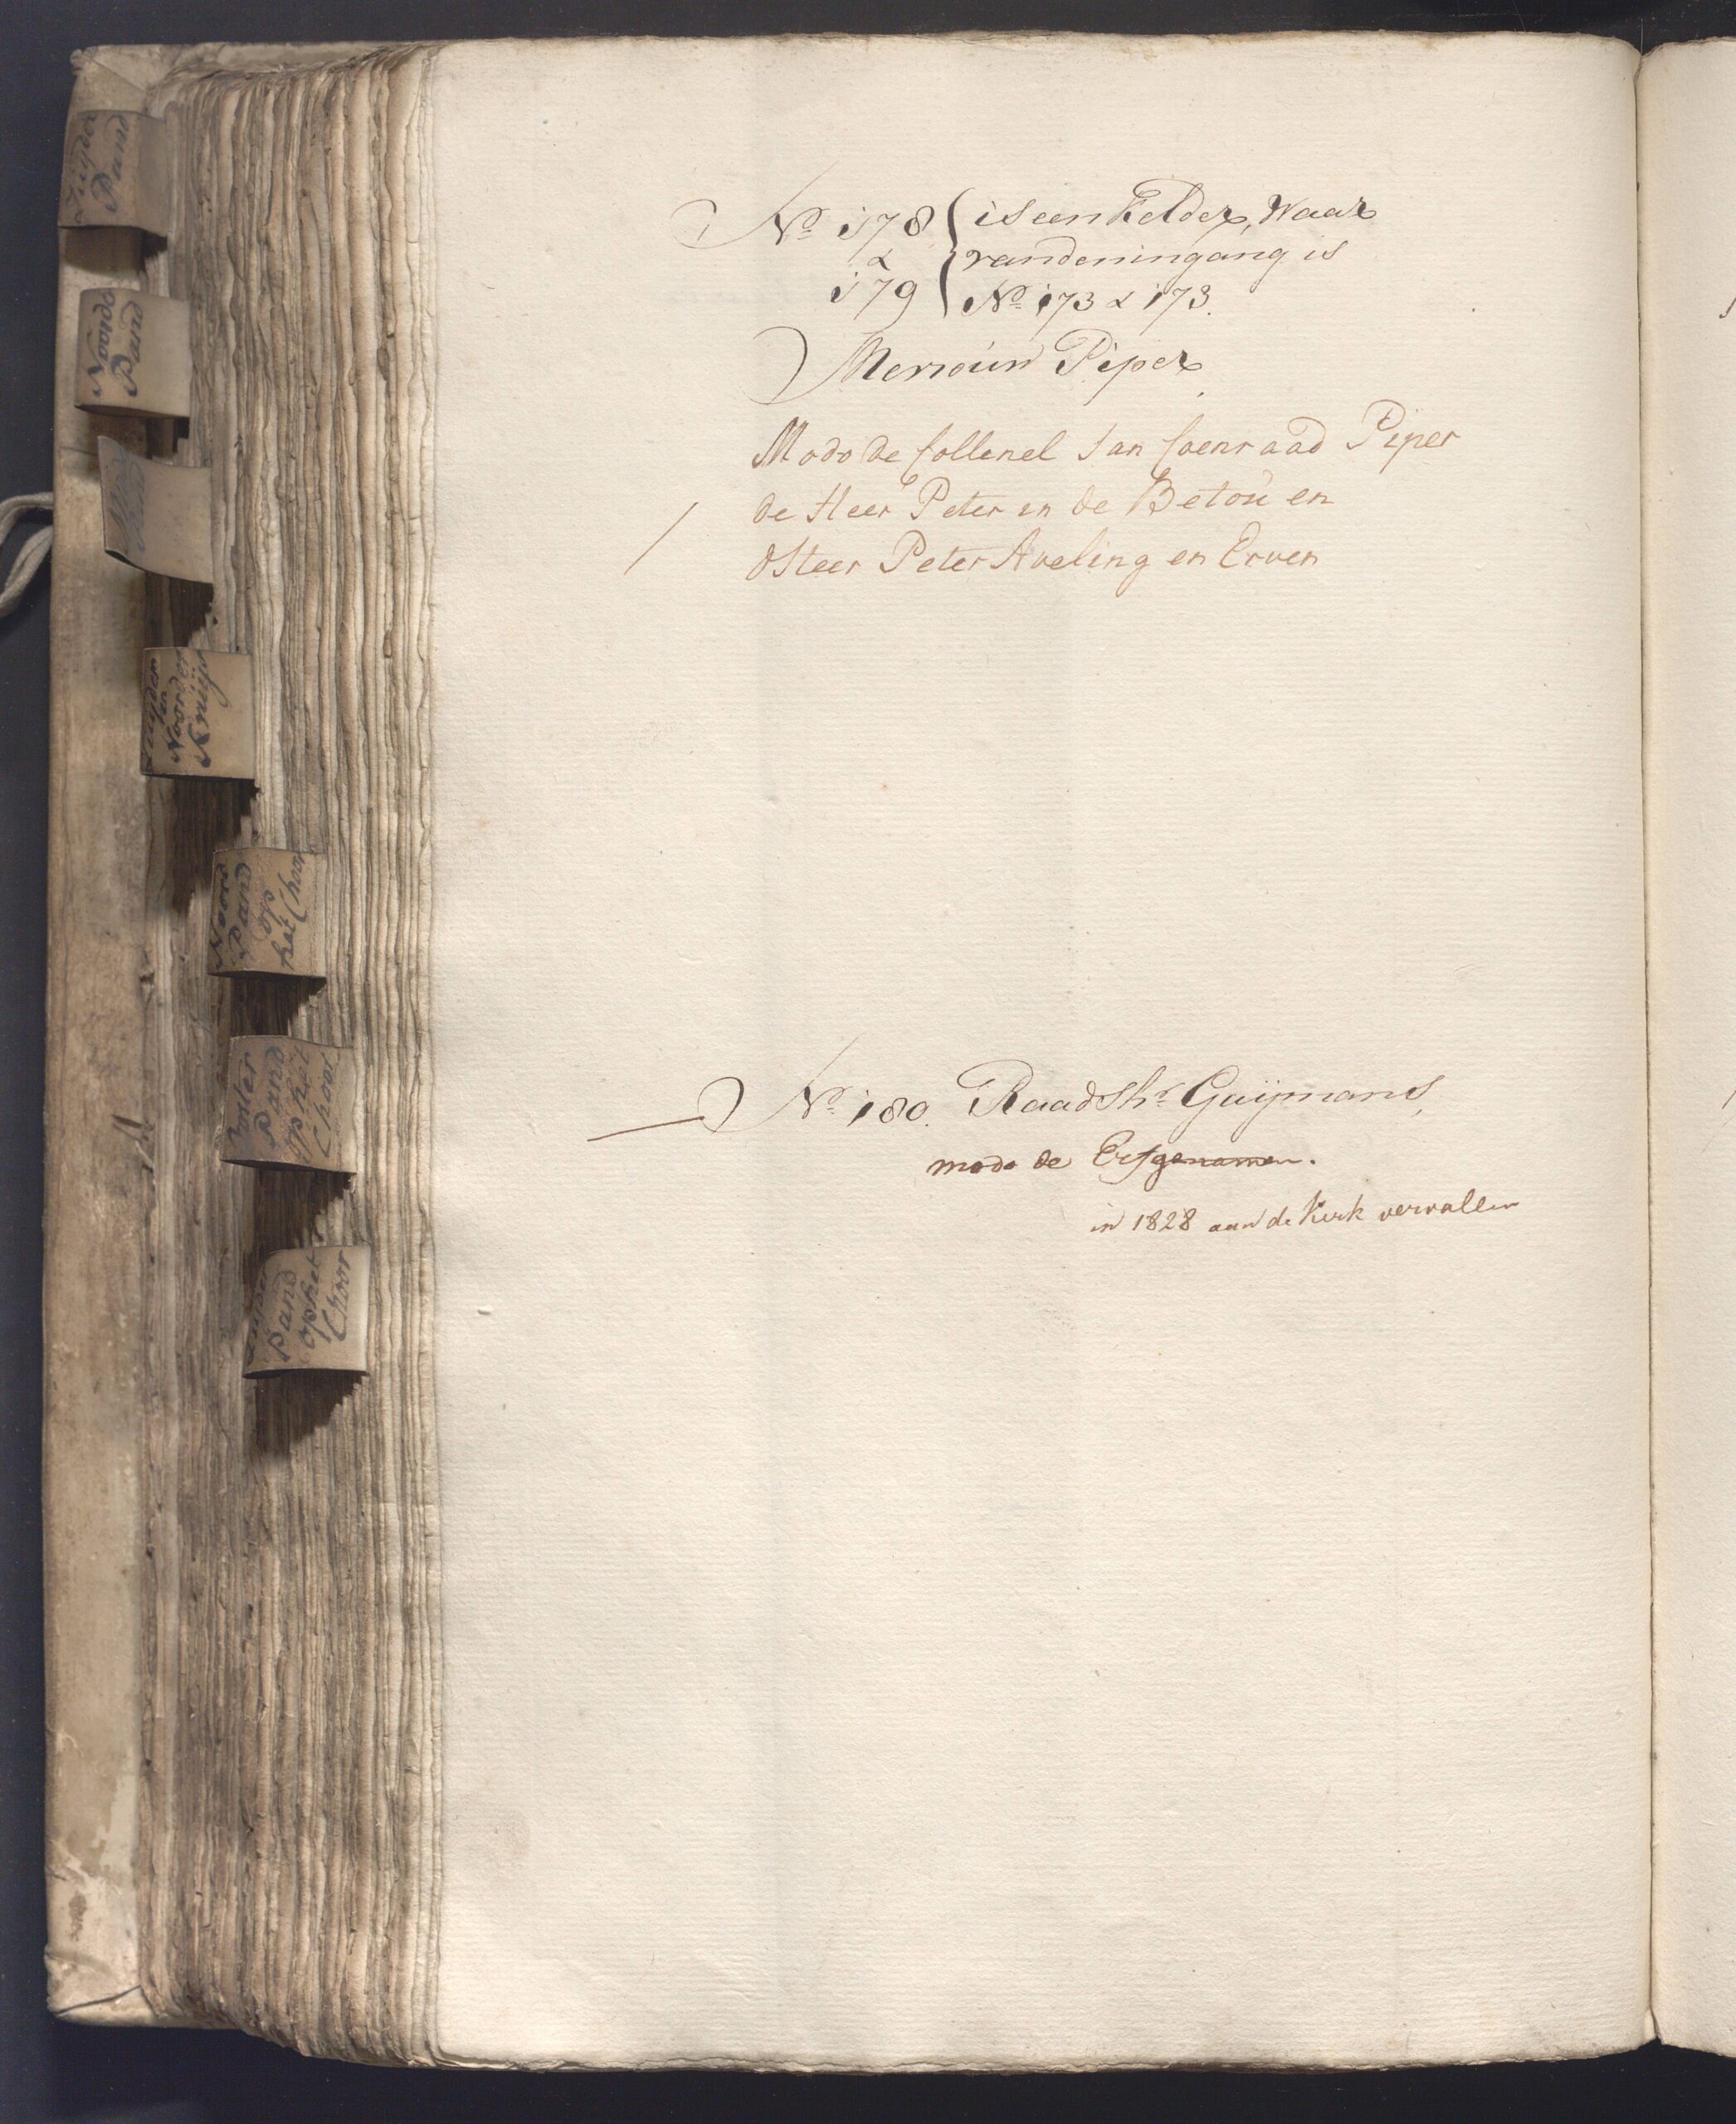 Zuijder
Pand
Noord
Pand
Zuijder
en
Noorder
Kruijs
Noord
Pand
op
het Choor
Ooster
Pand
op het
Choor
Pand
op het
Choor
No 178 { is een Kelder, Waar
& van den ingang is
179 No 173 & 173.
Mevrouw Piper
Modo de Collenel Jan Coenraad Piper
de Heer Peter en de Betou en
/ dHeer Peter Aveling en Erven
No 180. Raadshr Guijmans,
modo de Erfgenamen.
in 1828 aan de Kerk vervallen